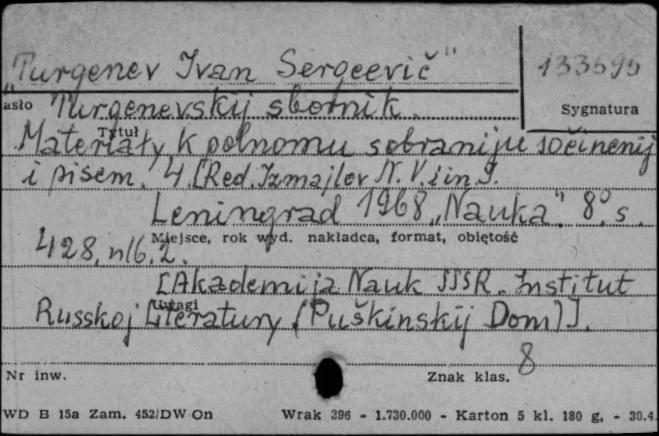 „Turgenev Ivan Sergeevič"
133595
asło Turgenevskij sbornik.
Sygnatura
Tytuł
Materiały k polnomu sobraniju sočinenij
i pisem. 4. [Red. Izmajlov N. V. i in.].
Leningrad 1968 „Nauka". 8°, s.
Miejsce, rok wyd. nakładca, format, objętość
428, nlb. 2.
[Akademija Nauk SSSR. Institut
Uwagi
Russkoj Literatury (Puškinskij Dom)].
8
Nr inw.
Znak klas.
WD B 15a Zam. 452/DW On Wrak 396 - 1.730.000 - Karton 5 kl. 180 g. - 30.4.